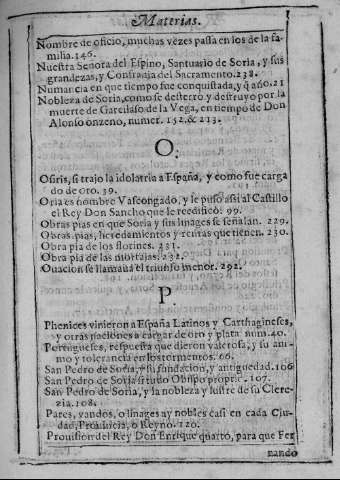 Materias.
Nombre de oficio, muchas vezes passa en los de la fa-
milia. 146.
Nuestra Señora del Espino, Santuario de Soria, y sus
grandezas, y Confranja del Sacramento. 238.
Numancia en que tiempo fue conquistada, y q̃ año. 21
Nobleza de Soria, como se desterrò y destruyo por la
muerte de Garcilaso de la Vega, en tiempo de Don
Alonso onzeno, numer. 152. & 213.
O.
Osiris, si trajo la idolatria a España, y como fue carga
do de oro. 39.
Oria es nombre Vascongado, y le puso assi al Castillo
el Rey Don Sancho que le reedificò. 99.
Obras pias en que Soria y sus linages se señalan. 229.
Obras pias, heredamientos y rentas que tienen. 230.
Obra pia de los florines. 231.
Obra pia de las mortajas. 232.
Ouacion se llamaua el triunfo menor. 292.
P.
Phenices vinieron a España Latinos y Carthagineses,
y otras naciones a cargar de oro y plata num. 40.
Portugueses, respuesta que dieron valerosa, y su ani-
mo y tolerancia en los tormentos. 66.
San Pedro de Soria, y su fundacion, y antiguedad. 106
San Pedro de Soria si tuuo Obispo proprio. 107.
San Pedro de Soria, y la nobleza y lustre de su Clere-
zia. 108.
Pares, vandos, o linages ay nobles casi en cada Ciu-
dad, Prouincia, o Reyno. 120.
Prouision del Rey Don Enrique quarto, para que Fer
nando